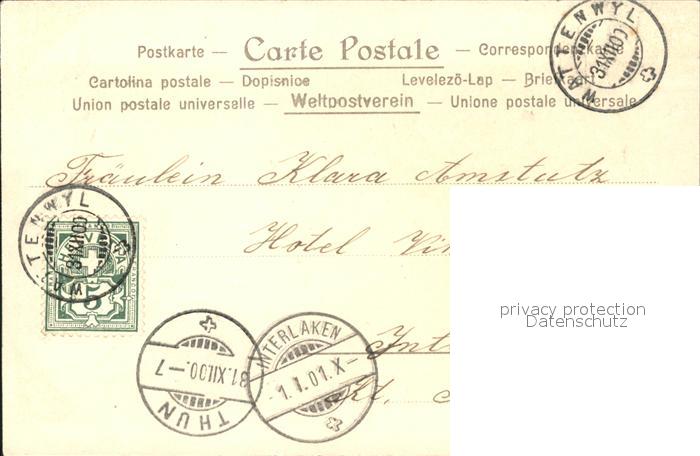 Postkarte — Carte Postale — Correspondenzkarte
Cartolina postale — Dopisnice Levelező-Lap — Briefkaart
Union postale universelle — Weltpostverein — Unione postale universale
WATTENWYL
31.XII.00
Fräulein Klara Amstutz
WATTENWYL
31.XII.00
5
Hotel
privacy protection
Datenschutz
THUN
31.XII.00.—7
INTERLAKEN
1.I.01.X—
Kt.